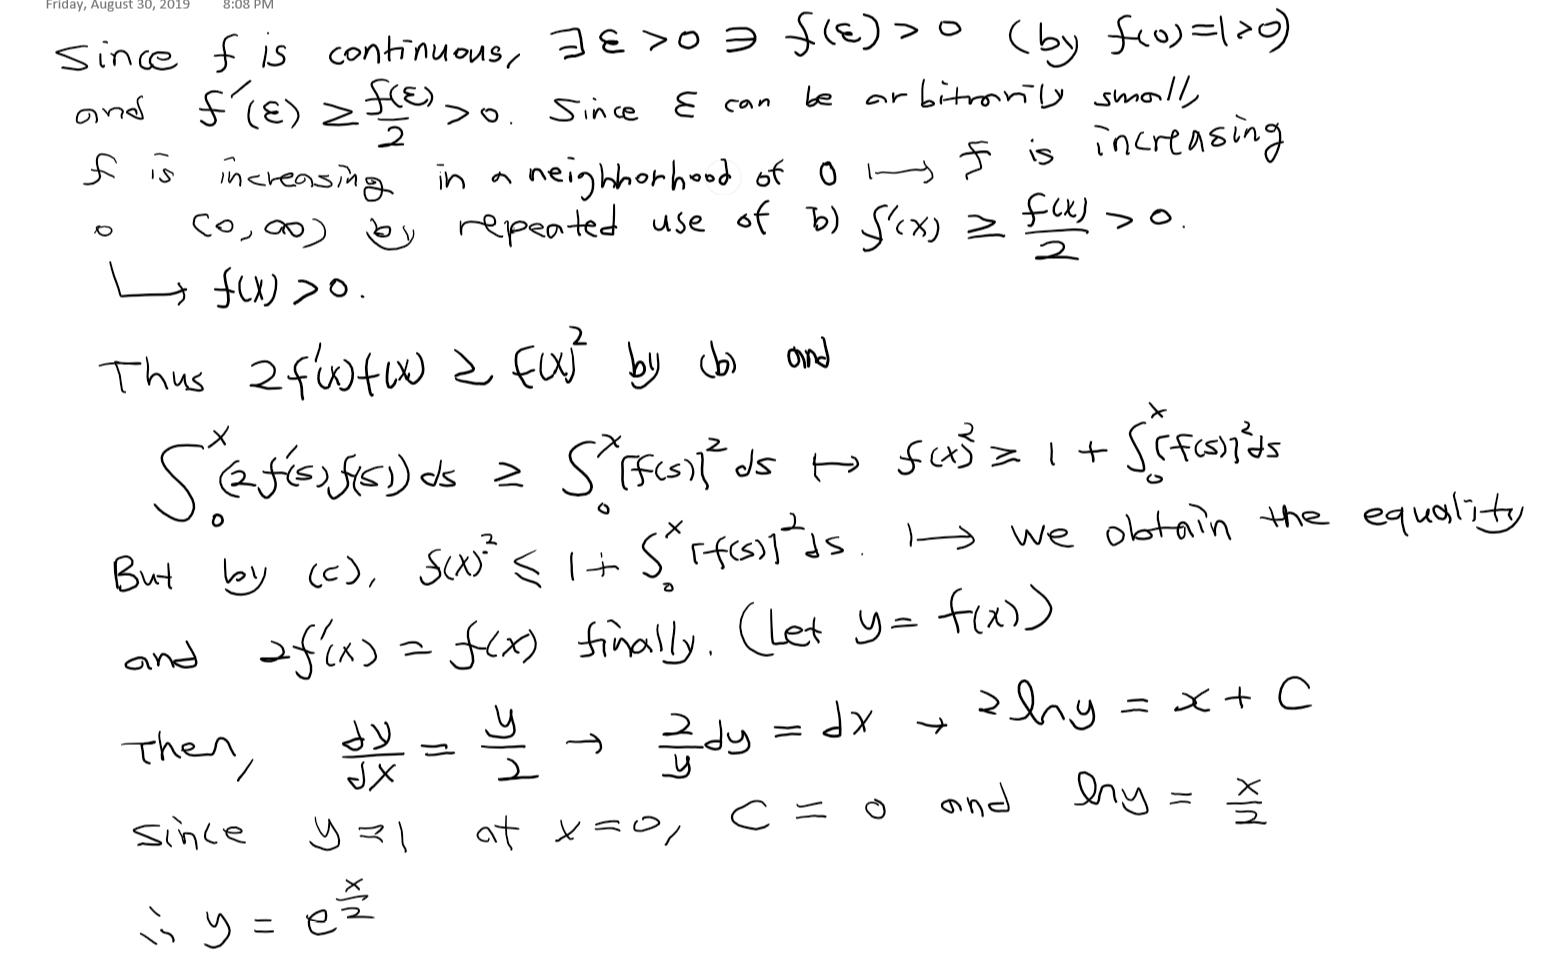 Friday, August 30, 2019 8:08 PM
Since f is continuous, ∃ ε > 0 ∋ f(ε) > 0 (by f(0)=1>0)
and f'(ε) ≥ f(ε)/2 > 0. Since ε can be arbitrarily small,
f is increasing in a neighborhood of 0 ↦ f is increasing
o (0,∞) by repeated use of b) f'(x) ≥ f(x)/2 > 0.
↳ f(x) > 0.
Thus 2f'(x)f(x) ≥ f(x)² by (b) and
∫₀ˣ (2f'(s)f(s)) ds ≥ ∫₀ˣ [f(s)]² ds ↦ f(x)² ≥ 1 + ∫₀ˣ [f(s)]² ds
But by (c), f(x)² ≤ 1 + ∫₀ˣ [f(s)]² ds. ↦ we obtain the equality
and 2f'(x) = f(x) finally. (Let y = f(x))
Then, dy/dx = y/2 → 2/y dy = dx → 2 ln y = x + C
since y = 1 at x = 0, C = 0 and ln y = x/2
∴ y = e^(x/2)